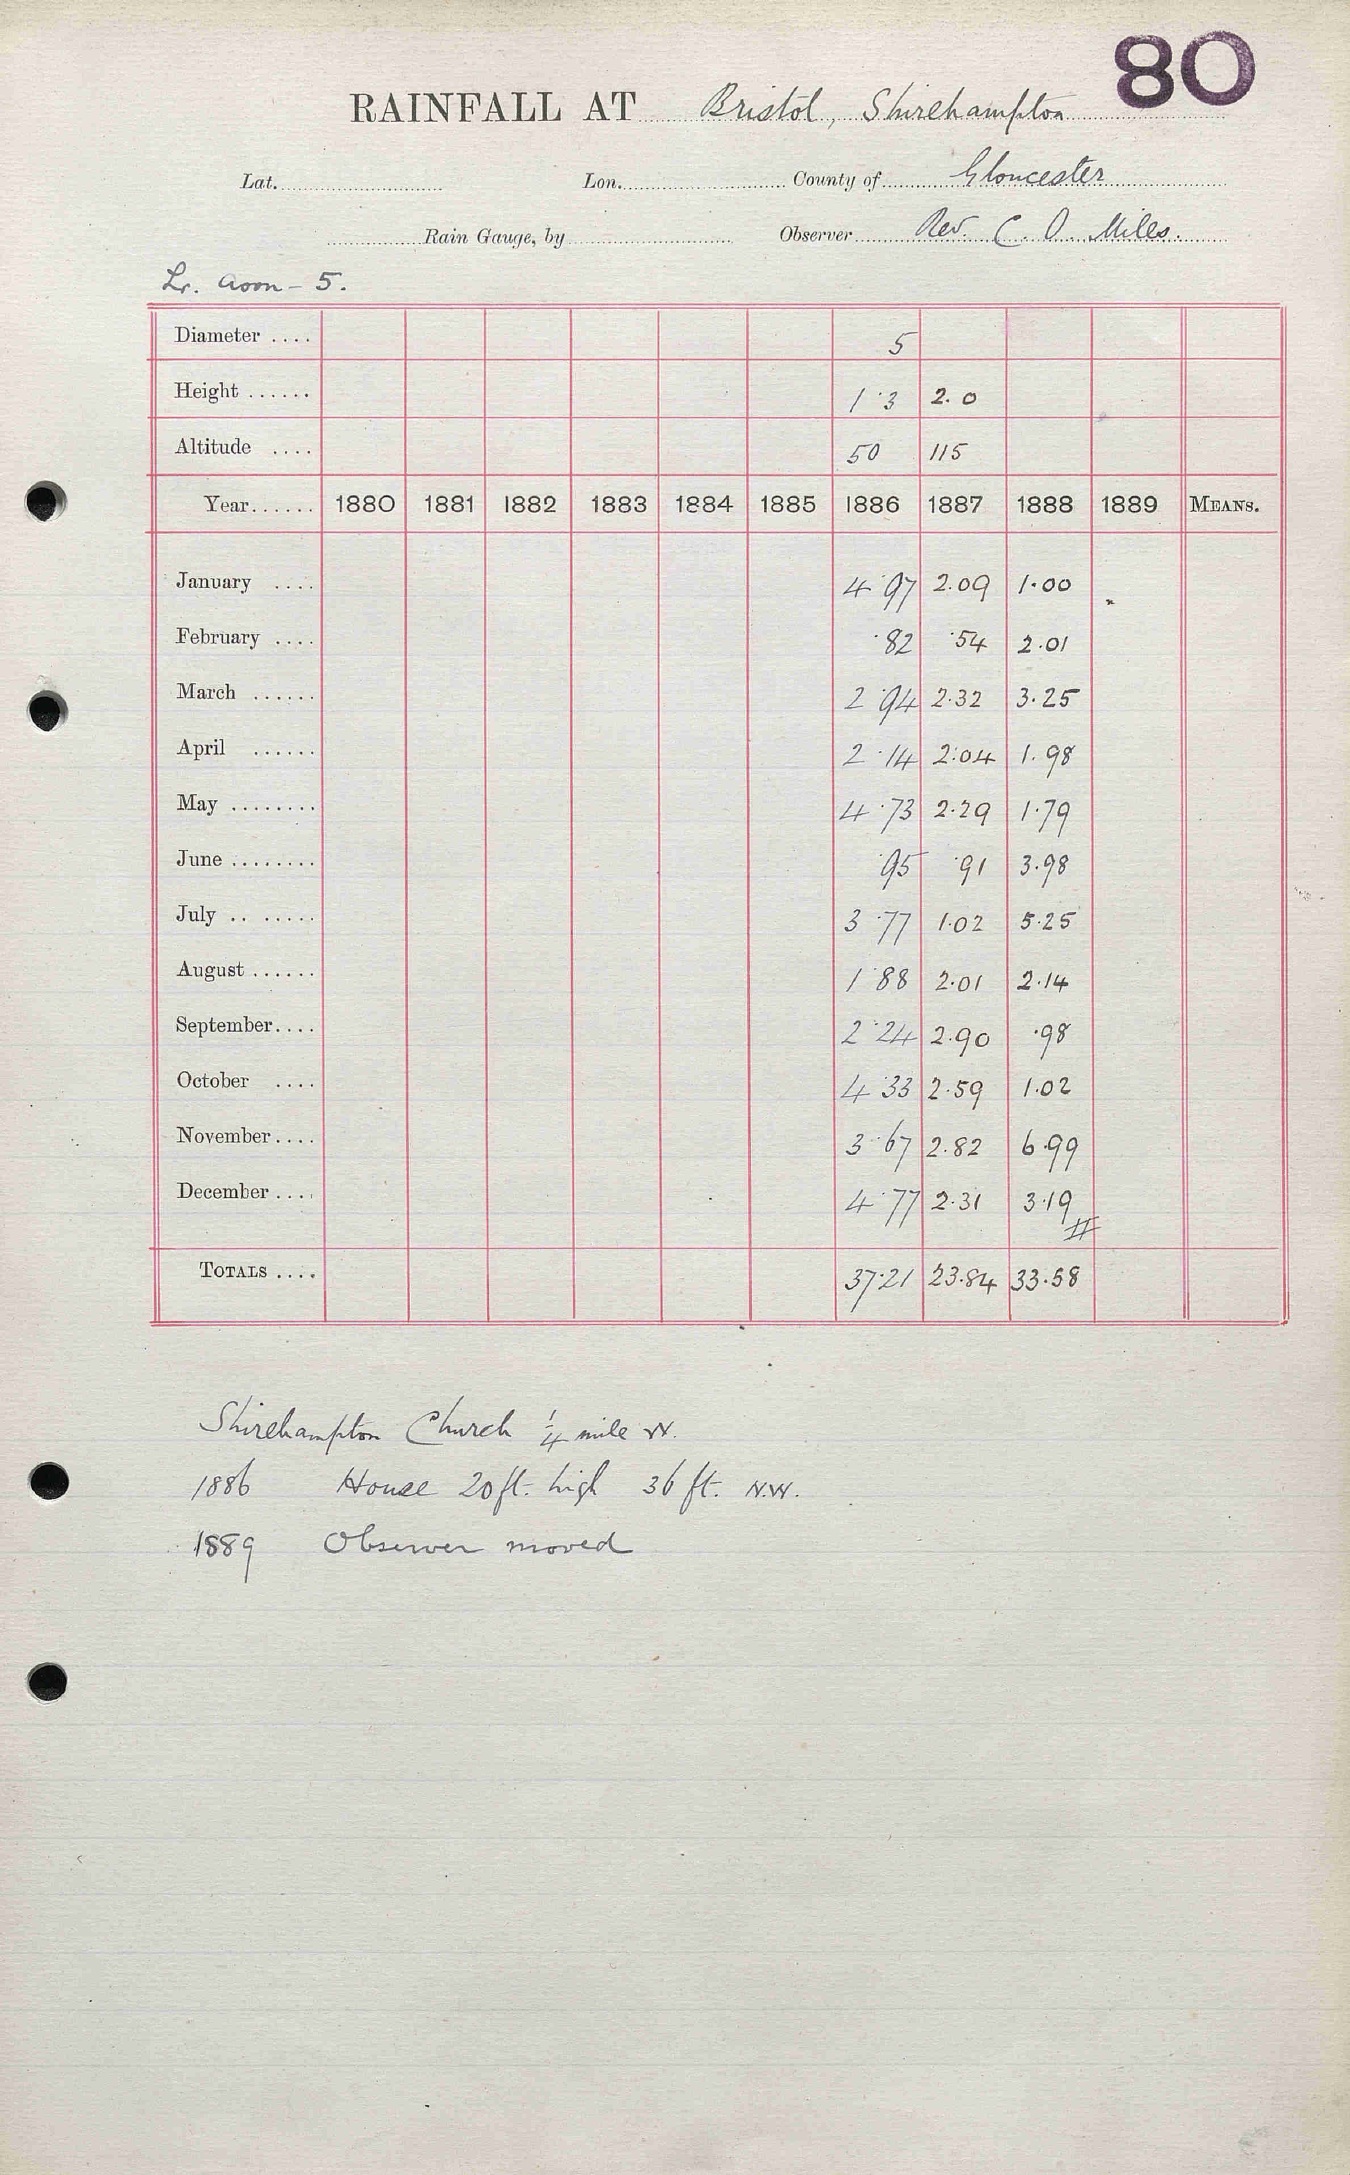 80
RAINFALL AT Bristol, Shirehampton
Lat. Lon. County of Gloucester
Rain Gauge, by Observer Rev. C. O. Miles.
Lr. Avon - 5.
Diameter .... 5
Height ...... 1·3 2.0
Altitude .... 50 115
Year...... 1880 1881 1882 1883 1884 1885 1886 1887 1888 1889 MEANS.
January .... 4·97 2.09 1.00
February .... ·82 ·54 2.01
March ...... 2·94 2.32 3.25
April ...... 2·14 2.04 1.98
May ........ 4·73 2.29 1.79
June ........ ·95 ·91 3.98
July .. ..... 3·77 1.02 5.25
August ...... 1·88 2.01 2.14
September.... 2·24 2.90 ·98
October .... 4·33 2.59 1.02
November.... 3·67 2.82 6.99
December.... 4·77 2.31 3.19
TOTALS .... 37·21 23.84 33.58
Shirehampton Church ¼ mile W.
1886 House 20 ft. high 36 ft. N.W.
1889 Observer moved